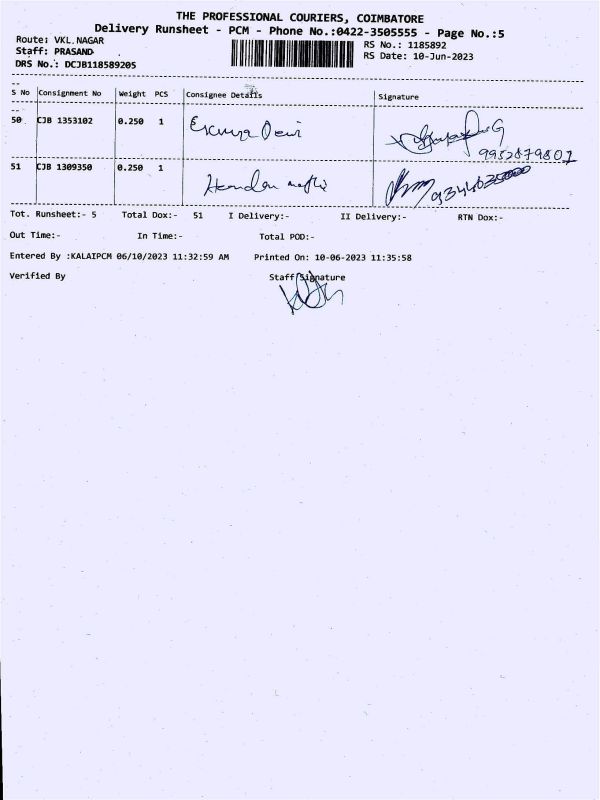 THE PROFESSIONAL COURIERS, COIMBATORE
Delivery Runsheet - PCM - Phone No.:0422-3505555 - Page No.:5
Route: VKL.NAGAR
RS No.: 1185892
Staff: PRASAND
RS Date: 10-Jun-2023
DRS No.: DCJB118589205
S No Consignment No Weight PCS Consignee Details Signature
50 CJB 1353102 0.250 1
9952879801
51 CJB 1309350 0.250 1
Tot. Runsheet:- 5 Total Dox:- 51 I Delivery:- II Delivery:- RTN Dox:-
Out Time:- In Time:- Total POD:-
Entered By :KALAIPCM 06/10/2023 11:32:59 AM Printed On: 10-06-2023 11:35:58
Verified By Staff Signature